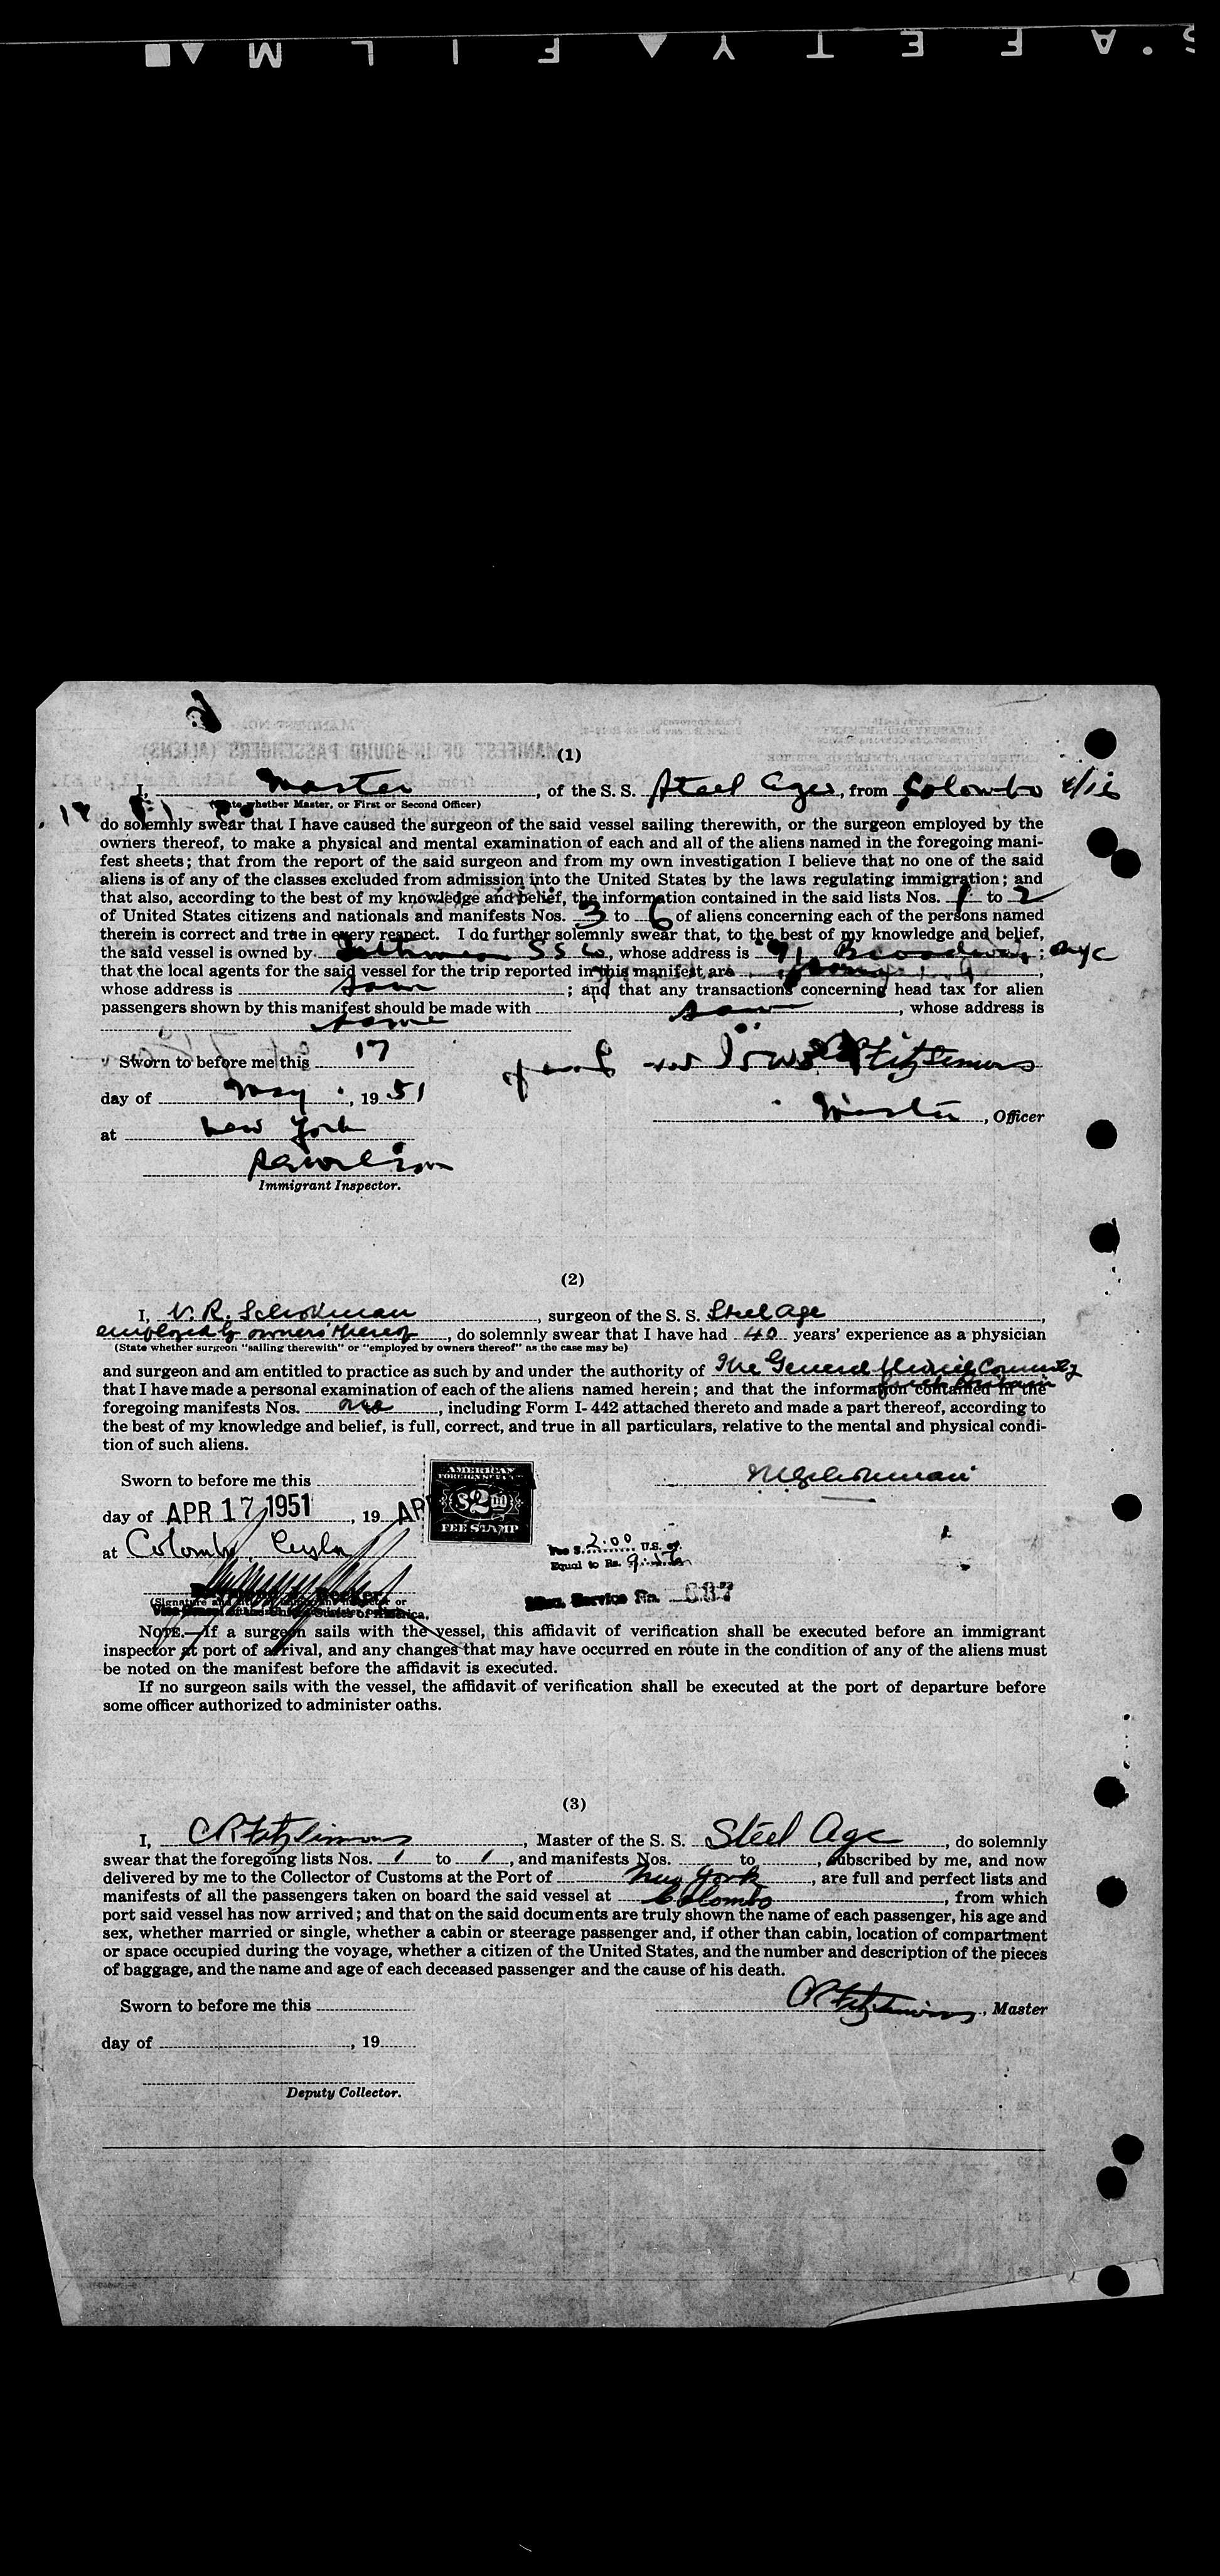 SAFETY FILM
(1)
I, Master, of the S. S. Steel Age, from Colombo 4/16
(State whether Master, or First or Second Officer)
do solemnly swear that I have caused the surgeon of the said vessel sailing therewith, or the surgeon employed by the
owners thereof, to make a physical and mental examination of each and all of the aliens named in the foregoing mani-
fest sheets; that from the report of the said surgeon and from my own investigation I believe that no one of the said
aliens is of any of the classes excluded from admission into the United States by the laws regulating immigration; and
that also, according to the best of my knowledge and belief, the information contained in the said lists Nos. 1 to 2
of United States citizens and nationals and manifests Nos. 3 to 6 of aliens concerning each of the persons named
therein is correct and true in every respect. I do further solemnly swear that, to the best of my knowledge and belief,
the said vessel is owned by Isthmian S S Co, whose address is 71 Broadway; NYC
that the local agents for the said vessel for the trip reported in this manifest are same,
whose address is same; and that any transactions concerning head tax for alien
passengers shown by this manifest should be made with same, whose address is
same
Sworn to before me this 17 Fitzsimons
day of May, 1951
Master, Officer
at New York
Immigrant Inspector.
(2)
I, V. R. Schokman, surgeon of the S. S. Steel Age,
employed by owners thereof, do solemnly swear that I have had 40 years' experience as a physician
(State whether surgeon "sailing therewith" or "employed by owners thereof" as the case may be)
and surgeon and am entitled to practice as such by and under the authority of The General Medical Council of
Great Britain
that I have made a personal examination of each of the aliens named herein; and that the information contained in the
foregoing manifests Nos. one, including Form I-442 attached thereto and made a part thereof, according to
the best of my knowledge and belief, is full, correct, and true in all particulars, relative to the mental and physical condi-
tion of such aliens.
Sworn to before me this VRSchokman
AMERICAN
FOREIGN SERVICE
$2.00
FEE STAMP
day of APR 17 1951, 19 AP
at Colombo, Ceylon
Fee $ 2.00 U.S.
Equal to Rs. 9.
Service No. 687
Becker
(Signature and title of immigrant inspector or
Vice Consul of the United States of America.
NOTE.—If a surgeon sails with the vessel, this affidavit of verification shall be executed before an immigrant
inspector at port of arrival, and any changes that may have occurred en route in the condition of any of the aliens must
be noted on the manifest before the affidavit is executed.
If no surgeon sails with the vessel, the affidavit of verification shall be executed at the port of departure before
some officer authorized to administer oaths.
(3)
I, CR Fitzsimons, Master of the S. S. Steel Age, do solemnly
swear that the foregoing lists Nos. 1 to 1, and manifests Nos. to, subscribed by me, and now
delivered by me to the Collector of Customs at the Port of New York, are full and perfect lists and
manifests of all the passengers taken on board the said vessel at Colombo, from which
port said vessel has now arrived; and that on the said documents are truly shown the name of each passenger, his age and
sex, whether married or single, whether a cabin or steerage passenger and, if other than cabin, location of compartment
or space occupied during the voyage, whether a citizen of the United States, and the number and description of the pieces
of baggage, and the name and age of each deceased passenger and the cause of his death.
Sworn to before me this CR Fitzsimons, Master
day of, 19
Deputy Collector.